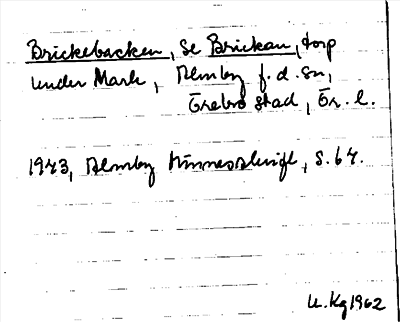 Brickebacken, se Brickan, torp
under Mark, Almby f.d. sn,
Örebro stad, Ör. l.
1943, Almby Minnesskrift, s. 64.
U.Kg 1962